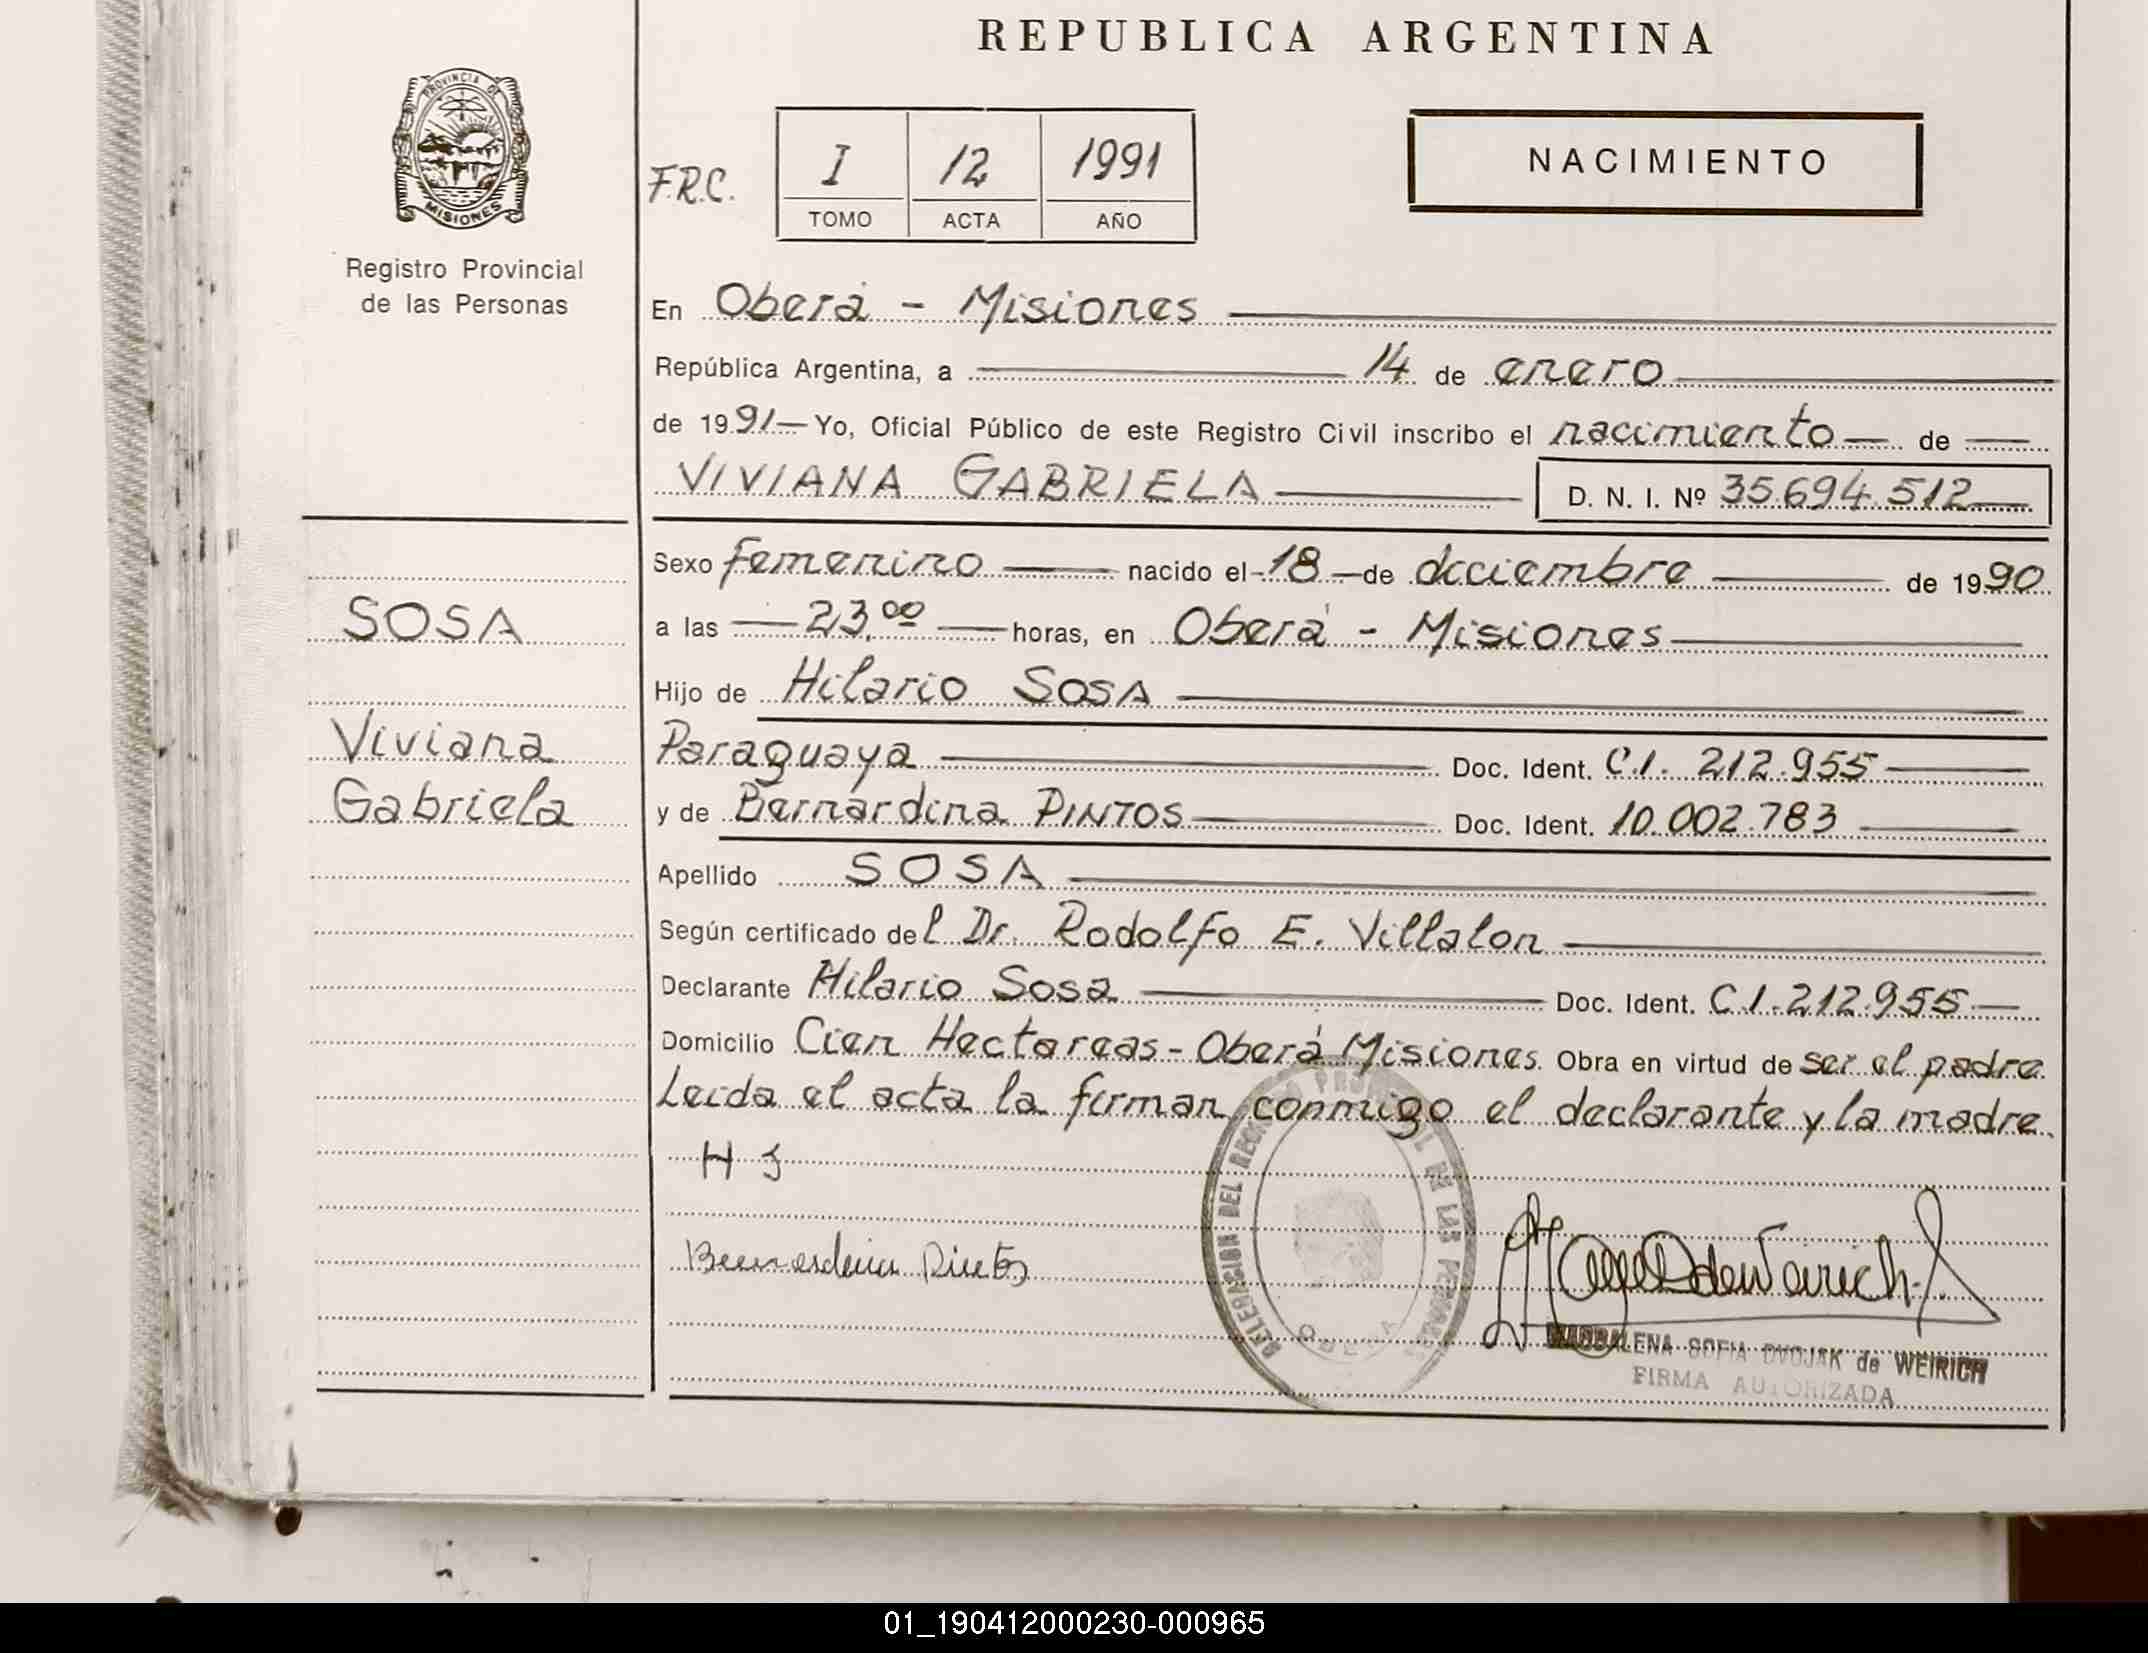 REPUBLICA ARGENTINA
PROVINCIA DE
MISIONES
Registro Provincial
de las Personas
F.R.C.
I 12 1991
TOMO ACTA AÑO
NACIMIENTO
En Oberá - Misiones
República Argentina, a 14 de enero
de 1991 Yo, Oficial Público de este Registro Civil inscribo el nacimiento de
VIVIANA GABRIELA D. N. I. Nº 35.694.512
SOSA
Viviana
Gabriela
Sexo femenino nacido el 18 de diciembre de 1990
a las 23,00 horas, en Oberá - Misiones
Hijo de Hilario SOSA
Paraguaya Doc. Ident. C.I. 212.955
y de Bernardina PINTOS Doc. Ident. 10.002.783
Apellido SOSA
Según certificado del Dr. Rodolfo E. Villalon
Declarante Hilario Sosa Doc. Ident. C.I. 212.955
Domicilio Cien Hectareas - Oberá Misiones Obra en virtud de ser el padre
Leida el acta la firman conmigo el declarante y la madre.
H S
Bernardina Pintos
DELEGACION DEL REGISTRO PROVINCIAL DE LAS PERSONAS
OBERA
MAGDALENA SOFIA DVOJAK de WEIRICH
FIRMA AUTORIZADA
01_190412000230-000965